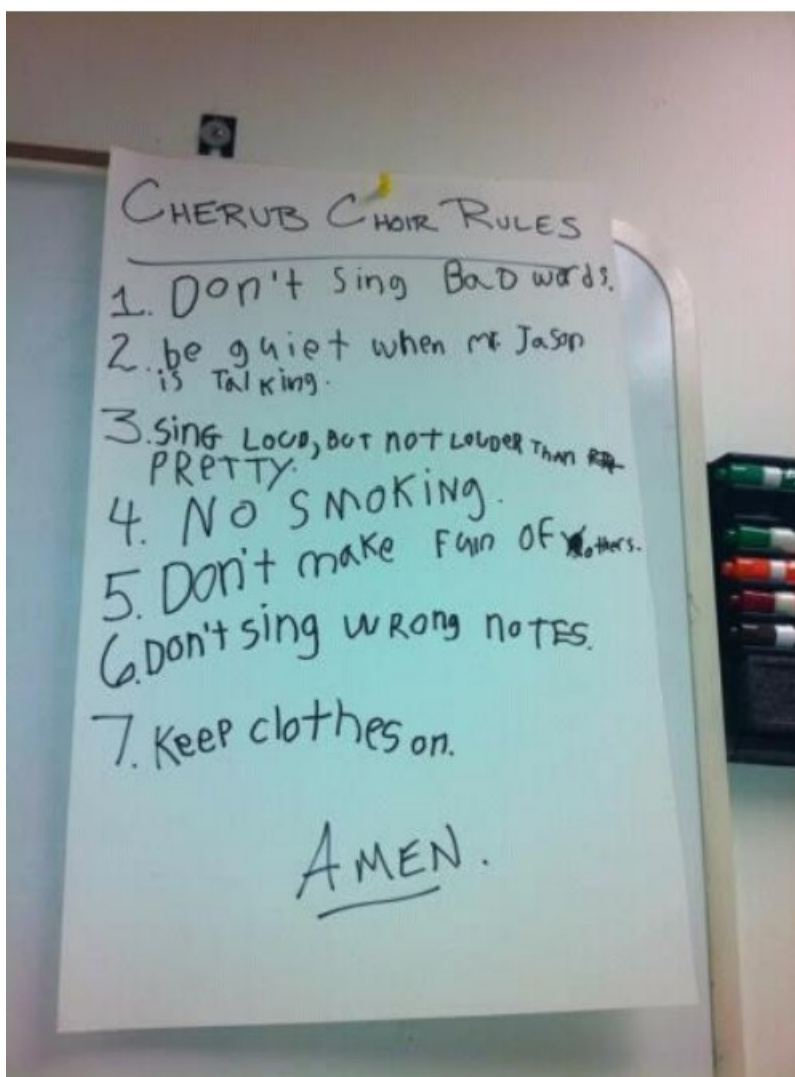 CHERUB CHOIR RULES
1. Don't sing BaD words.
2. be quiet when mr. Jason
is Talking.
3. SiNG LOUD, BUT NOT LOUDER THAN
PRETTY.
4. NO SMOKiNG.
5. Don't make Fun OF others.
6. Don't sing WRong noTES.
7. Keep clothes on.
AMEN.